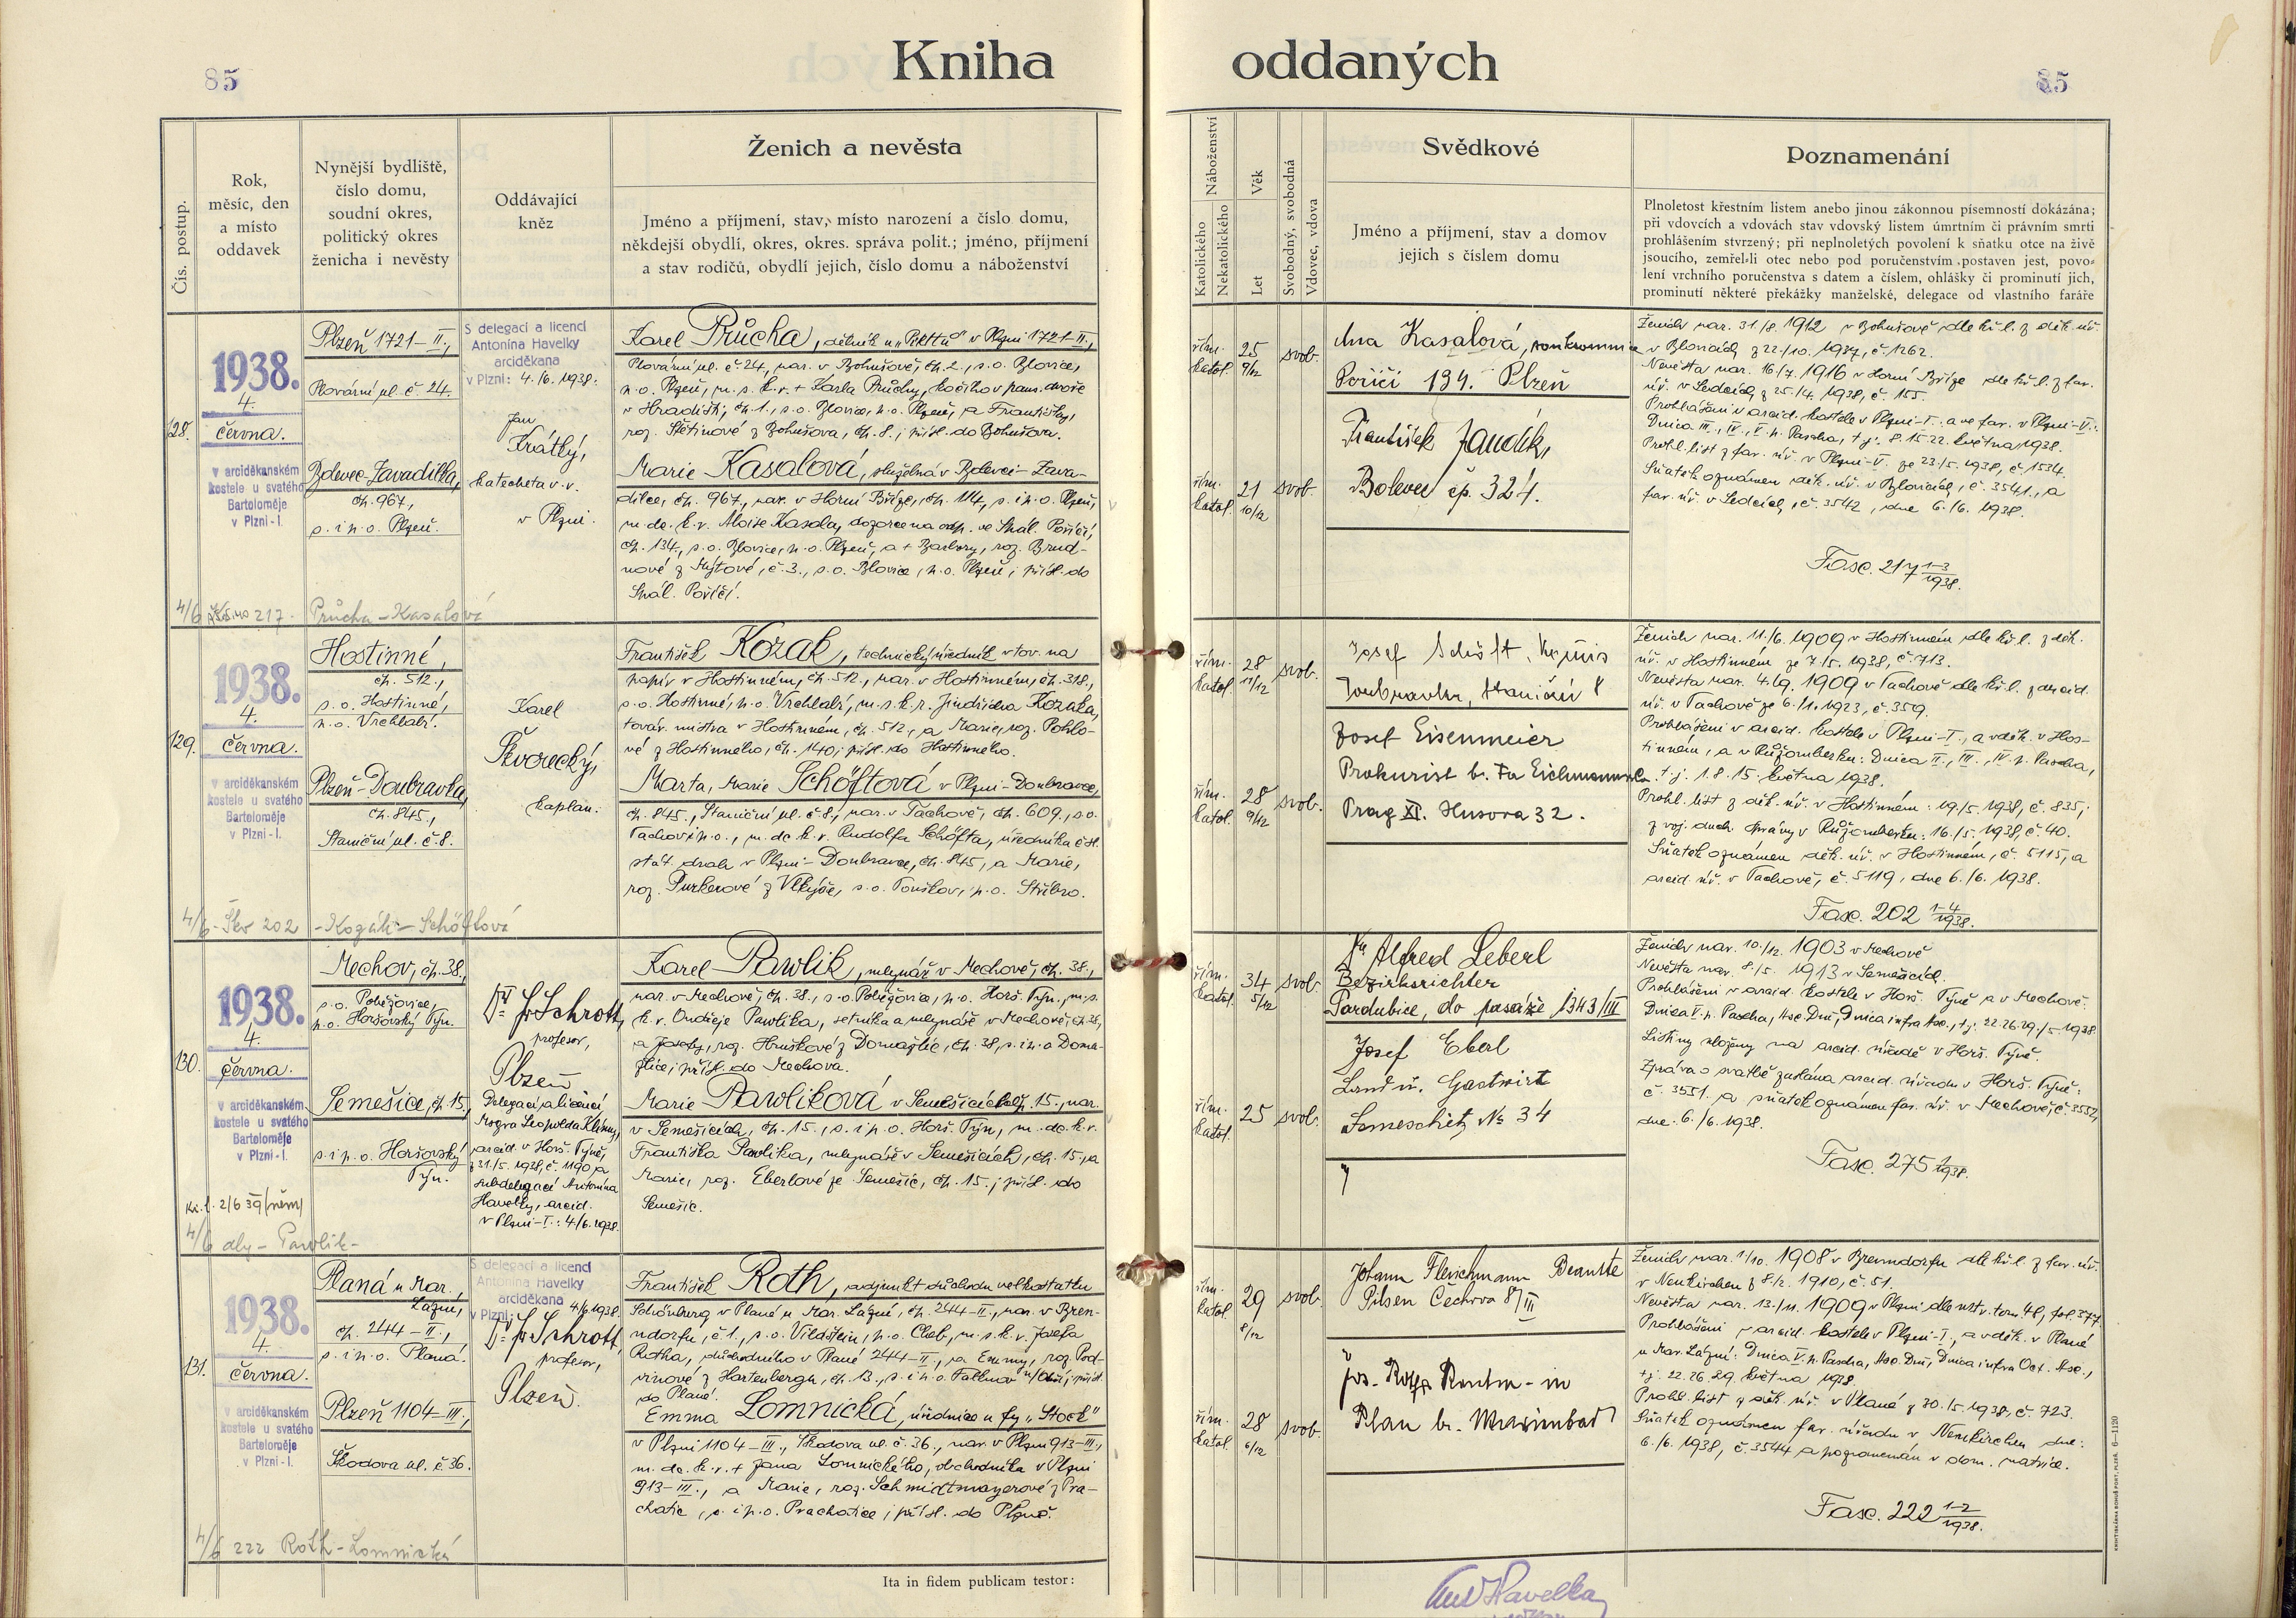 85
Kniha oddaných
85
Čís. postup.
Rok,
měsíc, den
a místo
oddavek
Nynější bydliště,
číslo domu,
soudní okres,
politický okres
ženicha i nevěsty
Oddávající
kněz
Ženich a nevěsta
Jméno a příjmení, stav, místo narození a číslo domu,
někdejší obydlí, okres, okres. správa polit.; jméno, příjmení
a stav rodičů, obydlí jejich, číslo domu a náboženství
Náboženství
Katolického
Nekatolického
Věk
Let
Svobodný, svobodná
Vdovec, vdova
Svědkové
Jméno a příjmení, stav a domov
jejich s číslem domu
Poznamenání
Plnoletost křestním listem anebo jinou zákonnou písemností dokázána;
při vdovcích a vdovách stav vdovský listem úmrtním či právním smrti
prohlášením stvrzený; při neplnoletých povolení k sňatku otce na živě
jsoucího, zemřel-li otec nebo pod poručenstvím postaven jest, povo-
lení vrchního poručenstva s datem a číslem, ohlášky či prominutí jich,
prominutí některé překážky manželské, delegace od vlastního faráře
128.
1938.
4.
června.
v arciděkanském
kostele u svatého
Bartoloměje
v Plzni-I.
Plzeň 1721-II.,
Plovární ul. č. 24.
Bolevec-Zavadilka,
čp. 967,
s. i p. o. Plzeň.
S delegací a licencí
Antonína Havelky
arciděkana
v Plzni: 4./6. 1938.
Jan
Krátký,
katecheta v. v.
v Plzni.
Karel Průcha, dělník u v Plzni 1721-II.,
Plovární ul. č. 24, nar. v Bohušově, čp. 2., s. o. Blovice,
p. o. Plzeň, m. s. k. v. + Karla Průchy, kočího v pans. dvoře
v Hradišti, čp. 1., s. o. Blovice, p. o. Plzeň, a Františky,
roz. Štětinové z Bohušova, čp. 8.; přísl. do Bohušova.
Marie Kasalová, služebná v Bolevci-Zava-
dilce, čp. 967., nar. v Horní Bříze, čp. 114, s. i p. o. Plzeň,
m. dc. k. v. Aloise Kasala, dozorce na odp. ve Spál. Poříčí,
čp. 134., s. o. Blovice, p. o. Plzeň, a + Barbory, roz. Brud-
nové z Mýtové, č. 3., s. o. Blovice, p. o. Plzeň; přísl. do
Spál. Poříčí.
4/6 217. Průcha-Kasalová
řím.
katol.
25
9/12
svob.
řím.
katol.
21
10/12
svob.
Kasalová, soukromnice
Poříčí 134. Plzeň
František Jandík,
Bolevec čp. 324.
Ženich nar. 31./8. 1912 v Bohušově dle kř. l. z děk. úř.
v Blovicích z 22./10. 1937, č. 1262.
Nevěsta nar. 16./7. 1916 v Horní Bříze dle kř. l. z far.
úř. v Ledcích z 25./4. 1938, č. 155.
Prohlášení v arcid. kostele v Plzni-I. a ve far. v Plzni-V.:
Dnica III., IV., V. p. Pascha, t. j. 8. 15. 22. května 1938.
Prohl. list z far. úř. v Plzni-V. ze 23./5. 1938, č. 1534.
Sňatek oznámen děk. úř. v Blovicích, č. 3541., a
far. úř. v Ledcích, č. 3542, dne 6./6. 1938.
Fasc. 217 1-3/1938.
129.
1938.
4.
června.
v arciděkanském
kostele u svatého
Bartoloměje
v Plzni-I.
Hostinné,
čp. 512.,
s. o. Hostinné,
p. o. Vrchlabí.
Plzeň-Doubravka,
čp. 845.,
Staniční ul. č. 8.
Karel
Škvorecký,
kaplan.
František Kozak, technický úředník v tov. na
papír v Hostinném, čp. 512., nar. v Hostinném, čp. 318.,
s. o. Hostinné, p. o. Vrchlabí, m. s. k. v. Jindřicha Kozaka,
továr. mistra v Hostinném, čp. 512., a Marie, roz. Pohlo-
vé z Hostinného, čp. 140; přísl. do Hostinného.
Marta, Marie Schöftová v Plzni-Doubravce,
čp. 845., Staniční ul. č. 8., nar. v Tachově, čp. 609., s. o.
Tachov i p. o., m. dc. k. v. Rudolfa Schöfta, úředníka čsl.
stát. drah v Plzni-Doubravce, čp. 845, a Marie,
roz. Purkerové z Vlkýše, s. o. Touškov, p. o. Stříbro.
4/6-Škv 202 -Kozák-Schöftová
řím.
katol.
28
11/12
svob.
řím.
katol.
28
9/12
svob.
Josef Schöft,
Doubravka, Staniční 8
Josef Eisenmeier
Prokurist b. Fa Eichmann & Co.
Prag XI. Husova 32.
Ženich nar. 11./6. 1909 v Hostinném dle kř. l. z děk.
úř. v Hostinném ze 7./5. 1938, č. 713.
Nevěsta nar. 4./9. 1909 v Tachově dle kř. l. z arcid.
úř. v Tachově ze 6./1. 1923, č. 359.
Prohlášení v arcid. kostele v Plzni-I., a v děk. v Hos-
tinném, a v Růžomberku: Dnica II., III., IV. p. Pascha,
t. j. 1. 8. 15. května 1938.
Prohl. list z děk. úř. v Hostinném: 19./5. 1938, č. 835;
z voj. duch. správy v Růžomberku: 16./5. 1938, č. 40.
Sňatek oznámen děk. úř. v Hostinném, č. 5115, a
arcid. úř. v Tachově, č. 5119, dne 6./6. 1938.
Fasc. 202 1-4/1938.
130.
1938.
4.
června.
v arciděkanském
kostele u svatého
Bartoloměje
v Plzni-I.
Kř. l. 2/6 39 (něm)
Mechov, čp. 38.,
s. o. Poběžovice,
p. o. Horšovský Týn.
Semešice, čp. 15.,
s. i p. o. Horšovský
Týn.
Dr. Schrott,
profesor,
Plzeň
Delegací a licencí
Msgra Leopolda Klímy,
arcid. v Horš. Týně,
z 31./5. 1938, č. 1190, a
subdelegací Antonína
Havelky, arcid.
v Plzni-I.: 4./6. 1938.
Karel Pawlik, mlynář v Mechově, čp. 38.,
nar. v Mechově, čp. 38., s. o. Poběžovice, p. o. Horš. Týn, m. s.
k. v. Ondřeje Pawlika, setníka a mlynáře v Mechově, čp. 38,
a Josefy, roz. Hruškové z Domažlic, čp. 38, s. i p. o. Doma-
žlice; přísl. do Mechova.
Marie Pawliková v Semešicích čp. 15., nar.
v Semešicích, čp. 15., s. i p. o. Horš. Týn, m. dc. k. v.
Františka Pawlika, mlynáře v Semešicích, čp. 15., a
Marie, roz. Eberlové ze Semešic, čp. 15.; přísl. do
Semešic.
4/6 - Pawlik-
řím.
katol.
34
5/12
svob.
řím.
katol.
25
svob.
Dr Alfred Leberl
Bezirksrichter
Pardubice, do pasáže 1343/III
Josef Eberl
Landw. Gastwirt
Semeschitz No 34
Ženich nar. 10./12. 1903 v Mechově
Nevěsta nar. 8./5. 1913 v Semešicích.
Prohlášení v arcid. kostele v Horš. Týně a v Mechově:
Dnica V. p. Pascha, Asc. Dni, Dnica infra Asc., t. j. 22. 26. 29./5. 1938.
Listiny uloženy na arcid. úřadě v Horš. Týně.
Zpráva o svatbě zaslána arcid. úřadu v Horš. Týně:
č. 3551. a sňatek oznámen far. úř. v Mechově, č. 3552,
dne 6./6. 1938.
Fasc. 275 1/1938.
131.
1938.
4.
června.
v arciděkanském
kostele u svatého
Bartoloměje
v Plzni-I.
Planá u Mar.
Lázní,
čp. 244-II.,
s. i p. o. Planá.
Plzeň 1104-III.,
Škodova ul. č. 36.
S delegací a licencí
Antonína Havelky
arciděkana
v Plzni: 4/6 1938.
Dr. Schrott,
profesor,
Plzeň.
František Roth, adjunkt důchodu velkostatku
Schönberg v Plané u Mar. Lázní, čp. 244-II., nar. v Bren-
ndorfu, č. 1., s. o. Vildštein, p. o. Cheb, m. s. k. v. Josefa
Rotha, důchodního v Plané 244-II., a Emmy, roz. Pod-
vinové z Hartenbergu, čp. 13., s. i p. o. Falknov n/Ohří; přísl.
do Plané.
Emma Lomnická, úřednice u fy „Stock"
v Plzni 1104-III., Škodova ul. č. 36., nar. v Plzni 913-III.,
m. dc. k. v. + Jana Lomnického, obchodníka v Plzni
913-III., a Marie, roz. Schmidtmayerové z Pra-
chatic, s. i p. o. Prachatice; přísl. do Plzně.
4/6 222 Roth-Lomnická
řím.
katol.
29
8/12
svob.
řím.
katol.
28
6/12
svob.
Johann Fleischmann Beamte
Pilsen Čechova 8/III
Plan b. Marienbad
Ženich nar. 1/10. 1908 v Brenndorfu dle kř. l. z far. úř.
v Neukirchen z 8./2. 1910, č. 51.
Nevěsta nar. 13./11. 1909 v Plzni dle mtr. tom. 46, fol. 377.
Prohlášení v arcid. kostele v Plzni-I., a v děk. v Plané
u Mar. Lázní: Dnica V. p. Pascha, Asc. Dni, Dnica infra Oct. Asc.,
t. j. 22. 26. 29. května 1938.
Prohl. list z děk. úř. v Plané z 30./5. 1938, č. 723.
Sňatek oznámen far. úřadu v Neukirchen dne:
6./6. 1938, č. 3544 a poznamenán v dom. matrice.
Fasc. 222 1-2/1938.
Ita in fidem publicam testor:
Ant Havelka